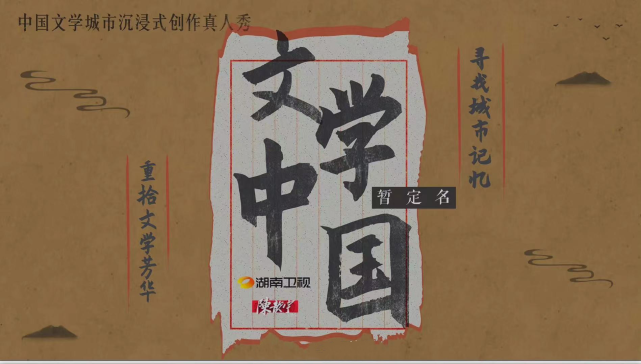 中国文学城市沉浸式创作真人秀
文学中国
暂定名
寻找城市记忆
重拾文学芳华
湖南卫视